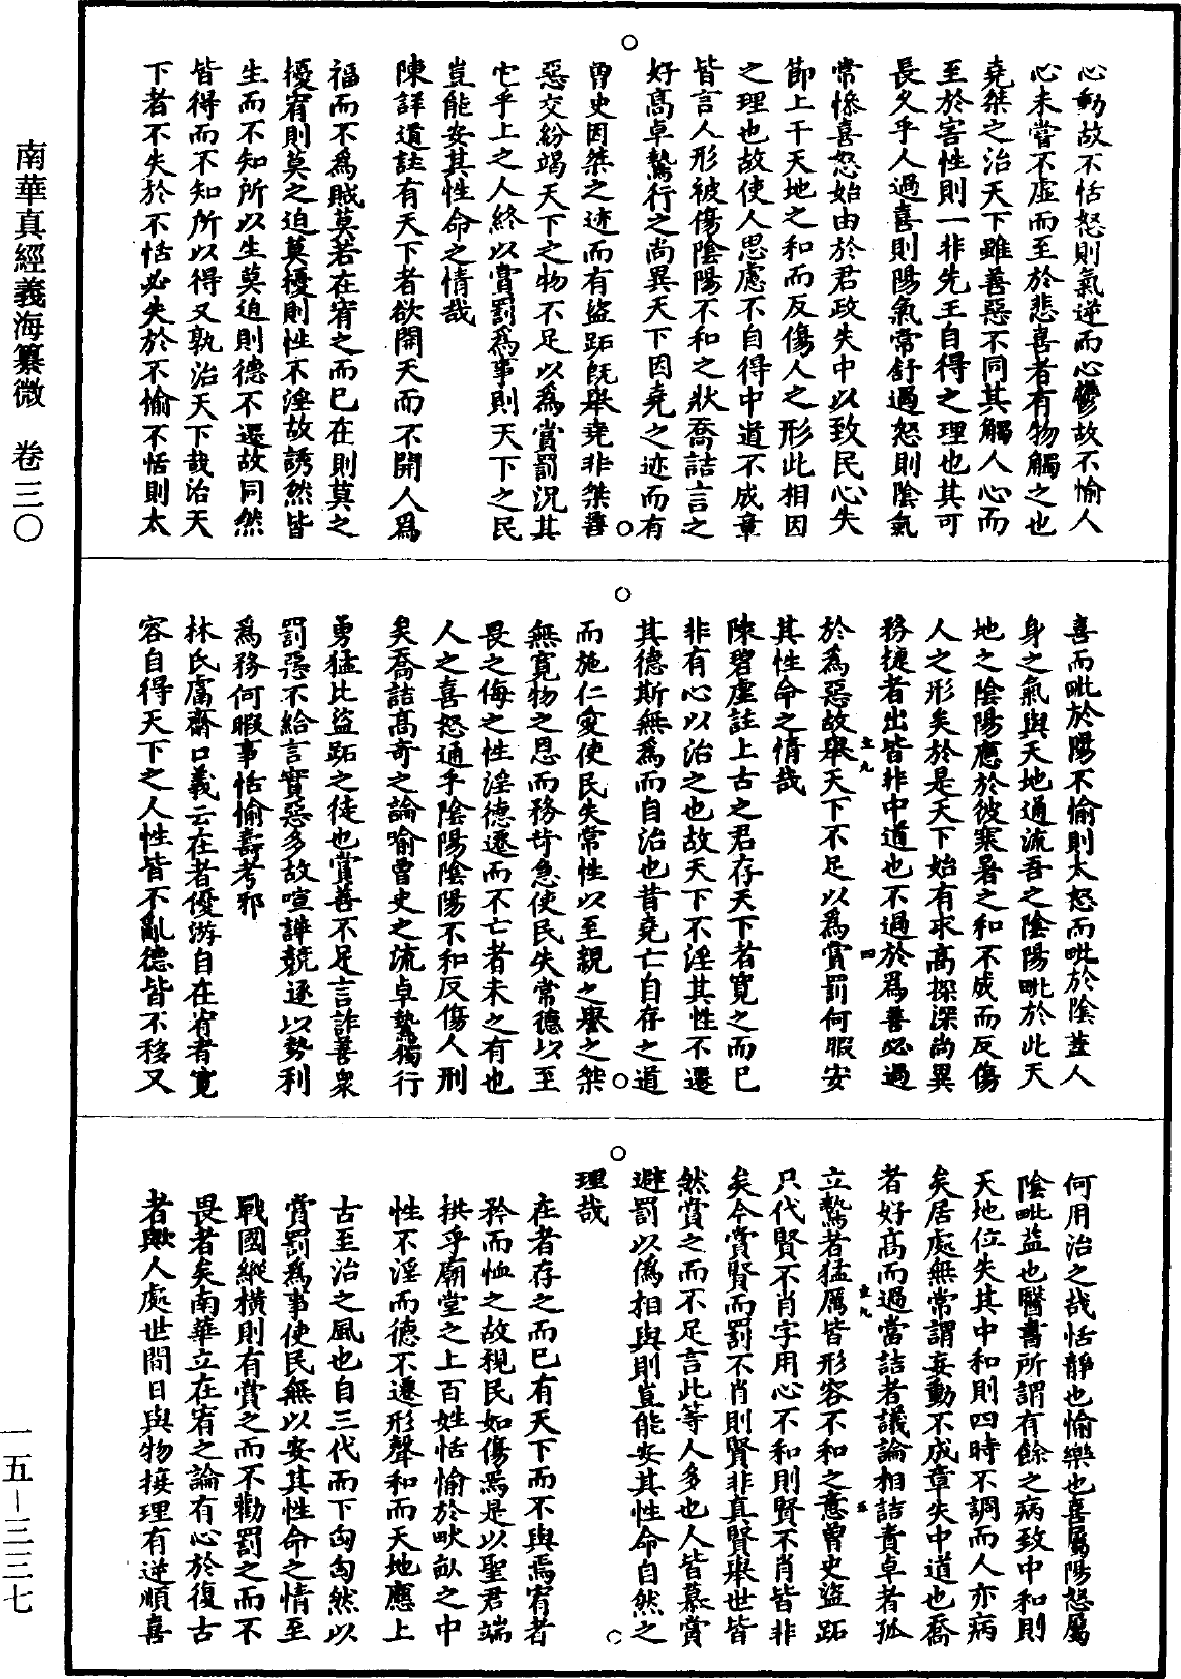 南華真經義海纂微　卷三〇
一五－三三七
心動故不恬怒則氣逆而心鬱故不愉人
心未嘗不虛而至於悲喜者有物觸之也
堯桀之治天下雖善惡不同其觸人心而
至於害性則一非先王自得之理也其可
長久乎人過喜則陽氣常舒過怒則陰氣
常慘喜怒始由於君政失中以致民心失
節上干天地之和而反傷人之形此相因
之理也故使人思慮不自得中道不成章
皆言人形被傷陰陽不和之狀喬詰言之
好高卓鷙行之尚異天下因堯之迹而有
曾史因桀之迹而有盜跖既舉堯非桀善
惡交紛竭天下之物不足以為賞罰況其
它乎上之人終以賞罰為事則天下之民
豈能安其性命之情哉
陳詳道註有天下者欲開天而不開人為
福而不為賊莫若在宥之而已在則莫之
擾宥則莫之迫莫擾則性不淫故誘然皆
生而不知所以生莫迫則德不遷故同然
皆得而不知所以得又孰治天下哉治天
下者不失於不恬必失於不愉不恬則太
喜而毗於陽不愉則太怒而毗於陰蓋人
身之氣與天地通流吾之陰陽毗於此天
地之陰陽應於彼寒暑之和不成而反傷
人之形矣於是天下始有求高探深尚異
務捷者出皆非中道也不過於為善必過
於為惡故舉天下不足以為賞罰何暇安
其性命之情哉
陳碧虛註上古之君存天下者寬之而已
非有心以治之也故天下不淫其性不遷
其德斯無為而自治也昔堯亡自存之道
而施仁愛使民失常性以至親之譽之桀
無寬物之恩而務苛急使民失常德以至
畏之侮之性淫德遷而不亡者未之有也
人之喜怒通乎陰陽陰陽不和反傷人刑
矣喬詰高奇之論喻曾史之流卓鷙獨行
勇猛比盜跖之徒也賞善不足言詐善衆
罰惡不給言實惡多故喧譁競逐以勢利
為務何暇事恬愉壽考邪
林氏鬳齋口義云在者優游自在宥者寬
容自得天下之人性皆不亂德皆不移又
何用治之哉恬靜也愉樂也喜屬陽怒屬
陰毗益也醫書所謂有餘之病致中和則
天地位失其中和則四時不調而人亦病
矣居處無常謂妄動不成章失中道也喬
者好高而過當詰者議論相詰責卓者孤
立鷙者猛厲皆形容不和之意曾史盜跖
只代賢不肖字用心不和則賢不肖皆非
矣今賞賢而罰不肖則賢非真賢舉世皆
然賞之而不足言此等人多也人皆慕賞
避罰以偽相與則豈能安其性命自然之
理哉
在者存之而已有天下而不與焉宥者
矜而恤之故視民如傷焉是以聖君端
拱乎廟堂之上百姓恬愉於畎畝之中
性不淫而德不遷形聲和而天地應上
古至治之風也自三代而下匈匈然以
賞罰為事使民無以安其性命之情至
戰國縱橫則有賞之而不勸罰之而不
畏者矣南華立在宥之論有心於復古
者歟人處世間日與物接理有逆順喜